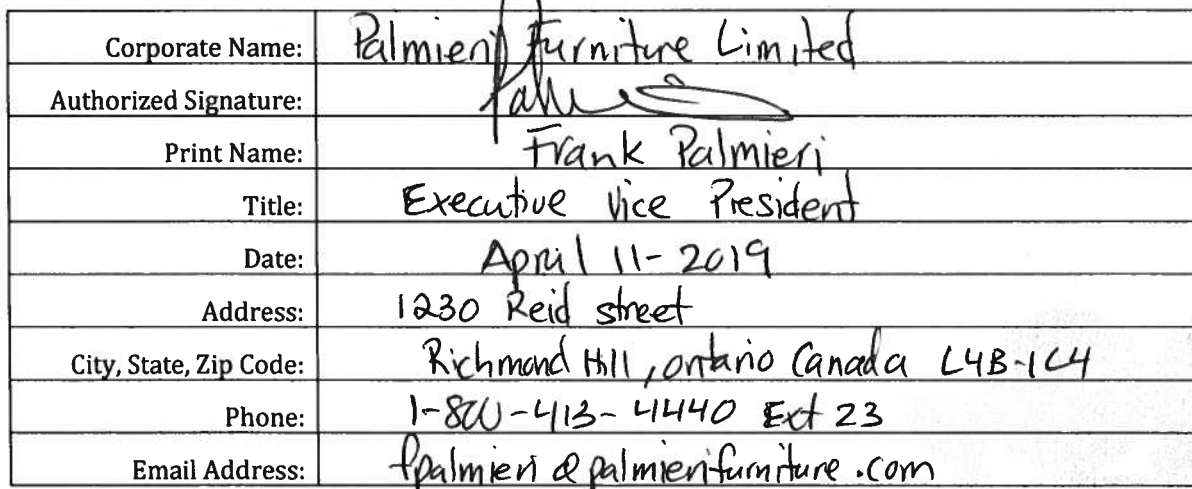 Corporate Name: Palmieri Furniture Limited
Authorized Signature:
Print Name: Frank Palmieri
Title: Executive Vice President
Date: April 11-2019
Address: 1230 Reid street
City, State, Zip Code: Richmond Hill, ontario Canada L4B-1C4
Phone: 1-800-413-4440 Ext 23
Email Address: fpalmieri@palmierifurniture.com